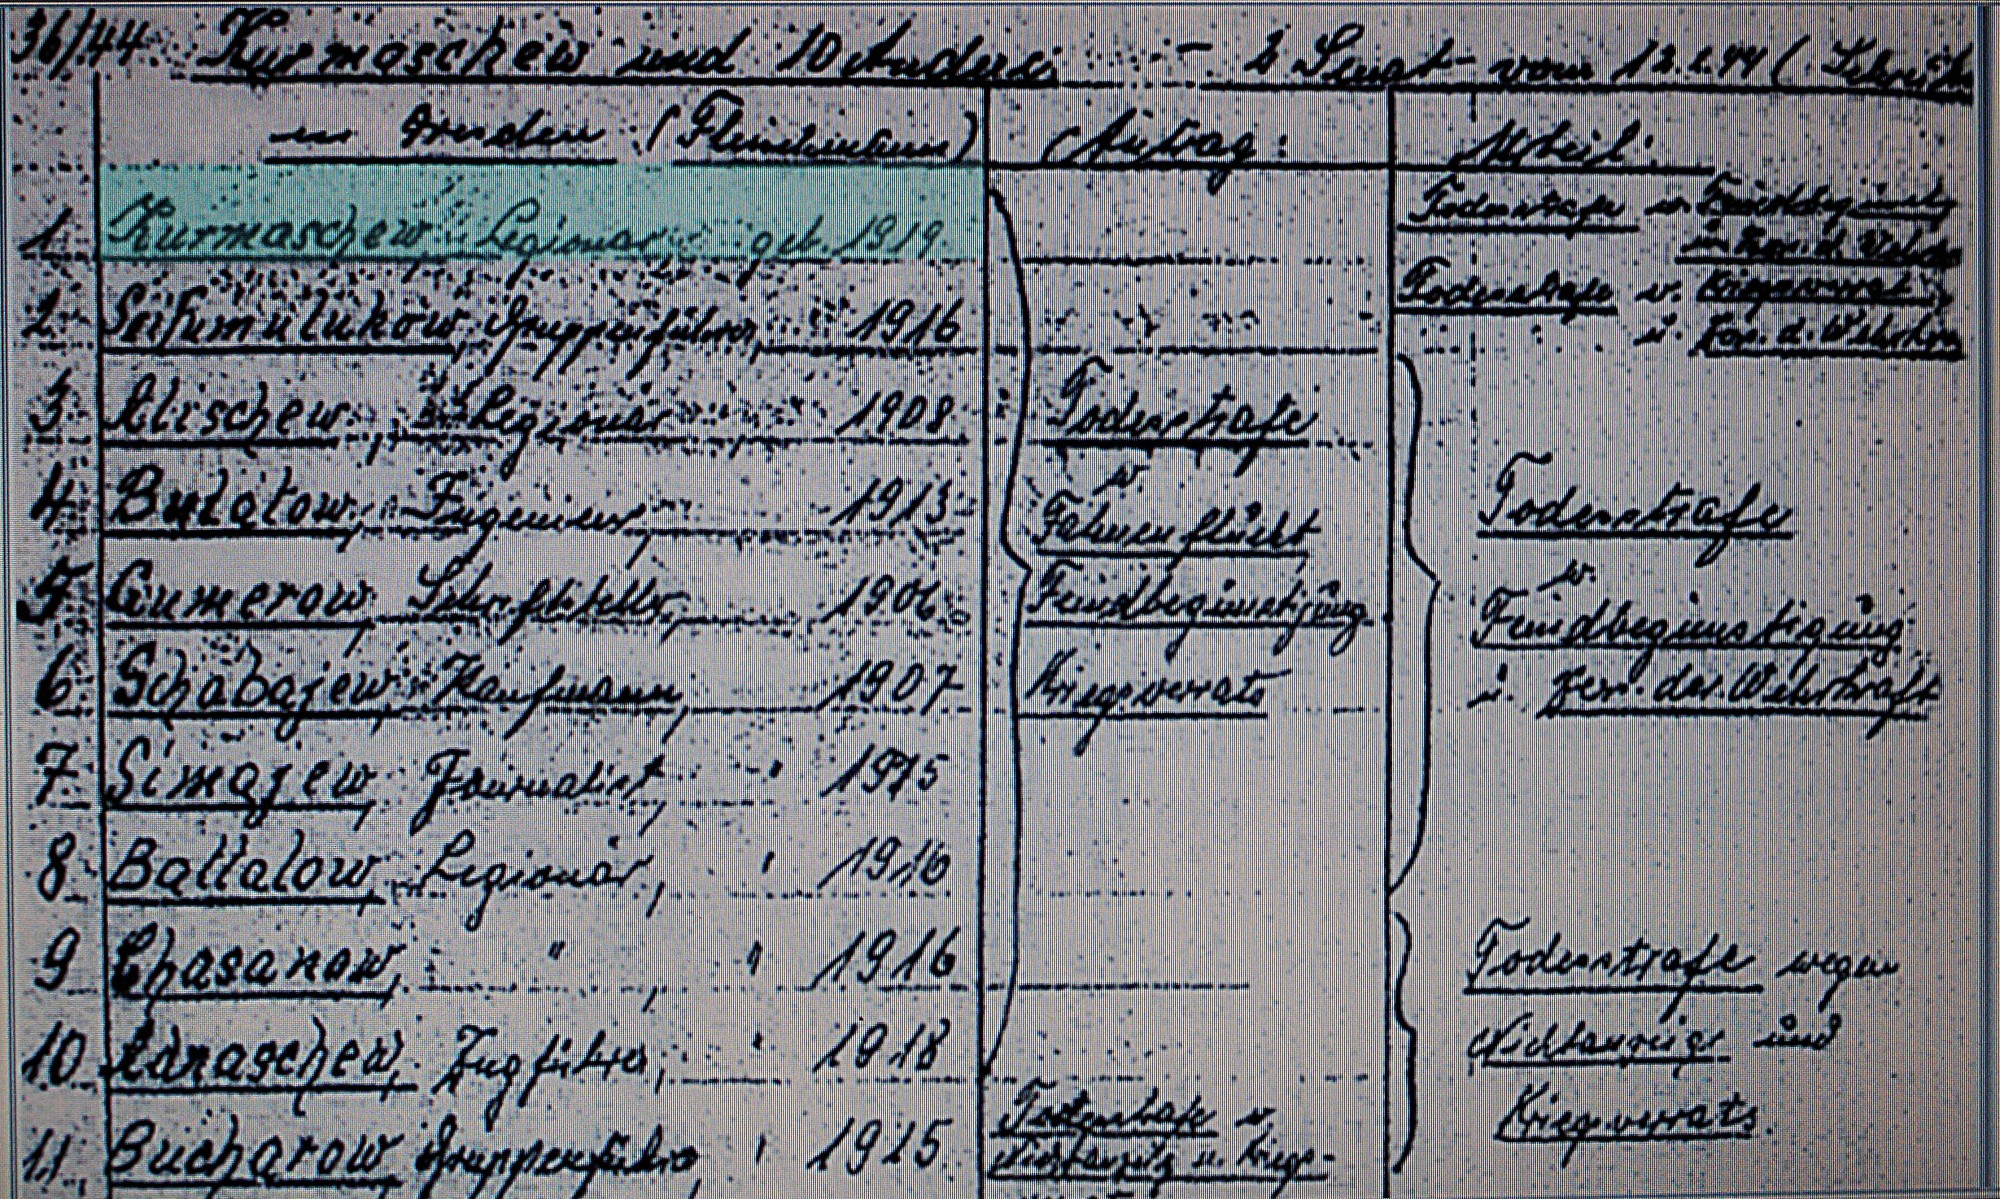 36/44 Kurmaschew und 10 Andere - 2 Senat vom 12.2.44 (
in Dresden ( )
Antrag: Urteil:
1. Kurmaschew, Legionär, geb. 1919. Todesstrafe w. Feindbegünstig
u. Zer. d. Wehrkr
2. Seifumulukow, Gruppenführer, 1916 Todesstrafe w. Kriegsverrat
u. Zer. d. Wehrkra
3 Alischew, Legionär, 1908 Todesstrafe
4 Bulatow, Ingenieur, 1913 w. Fahnenflucht Todesstrafe
5 Gumerow, Schriftsteller, 1906 Feindbegünstigung w. Feindbegünstigung
6 Schabajew, Kaufmann, 1907 Kriegsverrats u. Zer. der Wehrkraft
7 Simajew, Journalist, " 1915
8 Battalow, Legionär, " 1916
9 Chasanow, " " 1916 Todesstrafe wegen
10 Adnaschew, Zugführer, " 1918 Nichtanzeige und
11 Bucharow, Gruppenführer, " 1915 Todesstrafe w. Kriegsverrats.
Nichtanzeig u. Kriegs-